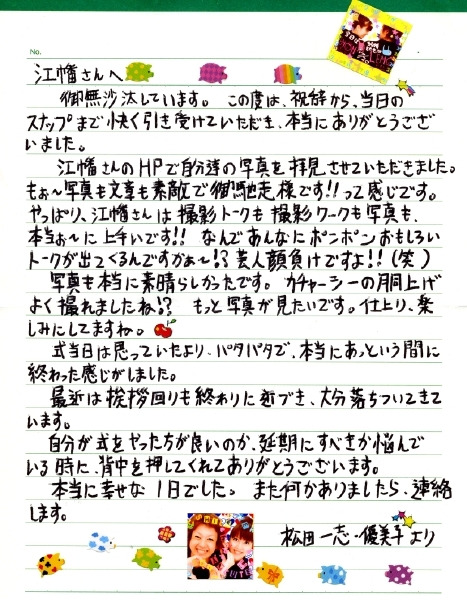 No.
江幡さんへ
御無沙汰しています。この度は、祝辞から、当日の
スナップまで快く引き受けていただき、本当にありがとうござ
いました。
江幡さんのHPで自分達の写真を拝見させていただきました。
もぉ〜写真も文章も素敵で御馳走様です!!って感じです。
やっぱり、江幡さんは撮影トークも撮影ワークも写真も、
本当ぉ〜に上手いです!! なんであんなにポンポンおもしろい
トークが出てくるんですかぁ〜!? 芸人顔負けですよ!!(笑)
写真も本当に素晴らしかったです。カチャーシーの胴上げ
よく撮れましたね!? もっと写真が見たいです。仕上り、楽
しみにしてますね。
式当日は思っていたより、バタバタで、本当にあっという間に
終わった感じがしました。
最近は挨拶回りも終わりに近づき、大分落ちついてきて
います。
自分が式をやったちが良いのか、延期にすべきか悩んで
いる時に、背中を押してくれてありがとうございます。
本当に幸せな1日でした。また何かありましたら、連絡
します。
松田一志・優美子より